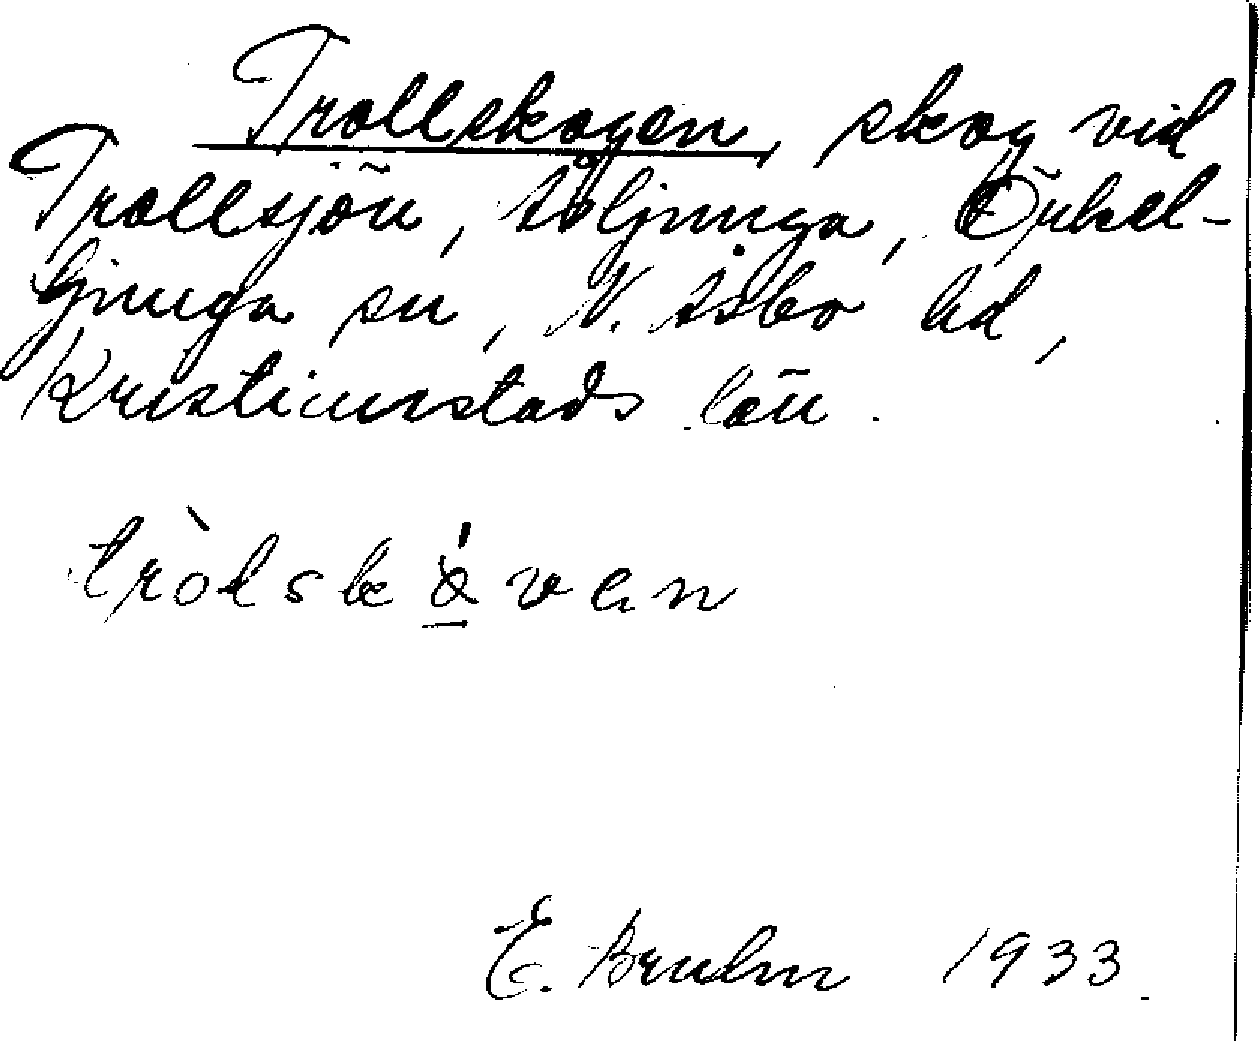 Trollskogen, skog vid
Trollsjön, Åljunga, Örkel-
ljunga sn, N. Åsbo hd,
Kristianstads län.
E. Bruhn 1933.